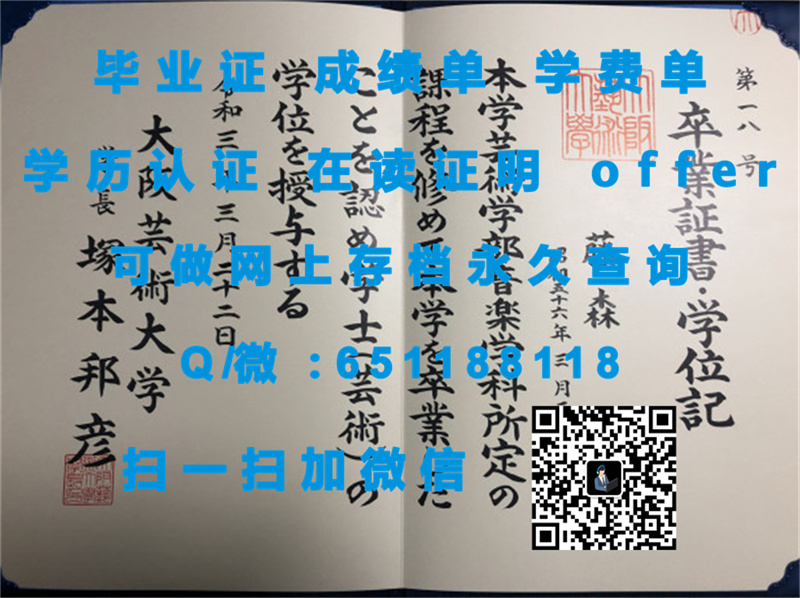 毕业证 成绩单 学费单
学历认证 在读证明 offer
可做网上存档永久查询
Q/微：651188118
扫一扫加微信
第一八 号
卒業証書・学位記
藤 森
五十六年三月
本学芸術学部音楽学科所定の
課程を修め本学を卒業した
ことを認め学士(芸術)の
学位を授与する
令和三年三月二十二日
大阪芸術大学
学長 塚本邦彦